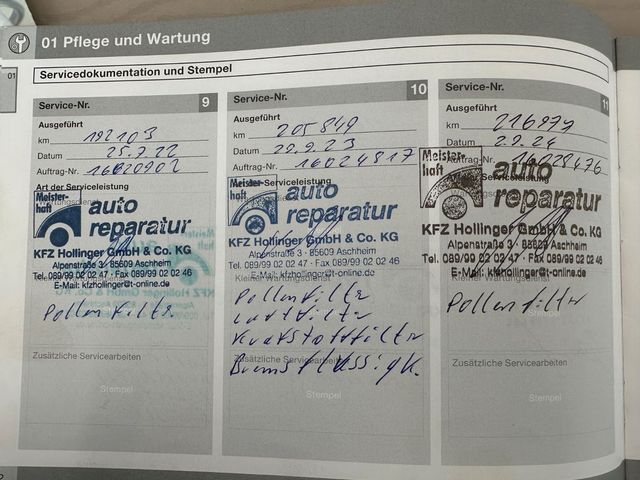 01 Pflege und Wartung
01
Servicedokumentation und Stempel
Service-Nr. 9
Ausgeführt
km 192103
Datum 25.7.22
Auftrag-Nr. 16020902
Art der Serviceleistung
Meister-
haft
auto
reparatur
KFZ Hollinger GmbH & Co. KG
Alpenstraße 3 · 85609 Aschheim
Tel. 089/99 02 02 47 · Fax 089/99 02 02 46
E-Mail: kfzhollinger@t-online.de
Pollenfilter
Zusätzliche Servicearbeiten
Stempel
Service-Nr. 10
Ausgeführt
km 205849
Datum 20.9.23
Auftrag-Nr. 16024817
Serviceleistung
Meister-
haft
auto
reparatur
KFZ Hollinger GmbH & Co. KG
Alpenstraße 3 · 85609 Aschheim
Tel. 089/99 02 02 47 · Fax 089/99 02 02 46
E-Mail: kfzhollinger@t-online.de
Kleiner Wartungsdienst
Pollenfilter
Luftfilter
Kraftstofffilter
Zusätzliche Servicearbeiten
Bremsflüssigk.
Stempel
Service-Nr. 11
Ausgeführt
km 216977
Datum 2.9.24
Auftrag-Nr. 16028476
Serviceleistung
Meister-
haft
auto
reparatur
KFZ Hollinger GmbH & Co. KG
Alpenstraße 3 · 85609 Aschheim
Tel. 089/99 02 02 47 · Fax 089/99 02 02 46
E-Mail: kfzhollinger@t-online.de
Kleiner Wartungsdienst
Pollenfilter
Zusätzliche Servicearbeiten
Stempel